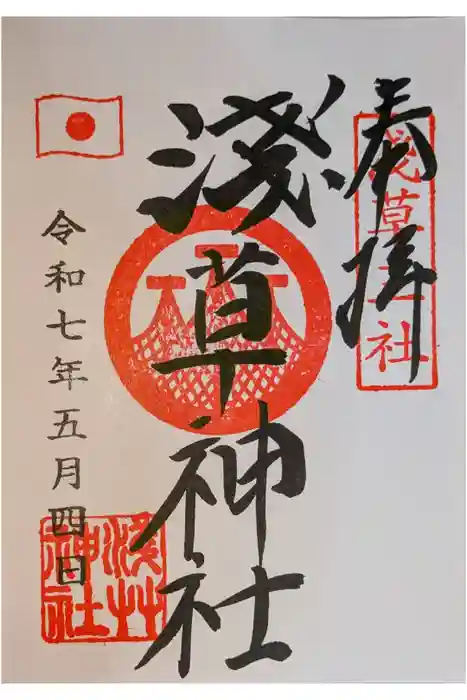 奉拝
浅草社
淺草神社
令和七年五月四日
淺草
神社